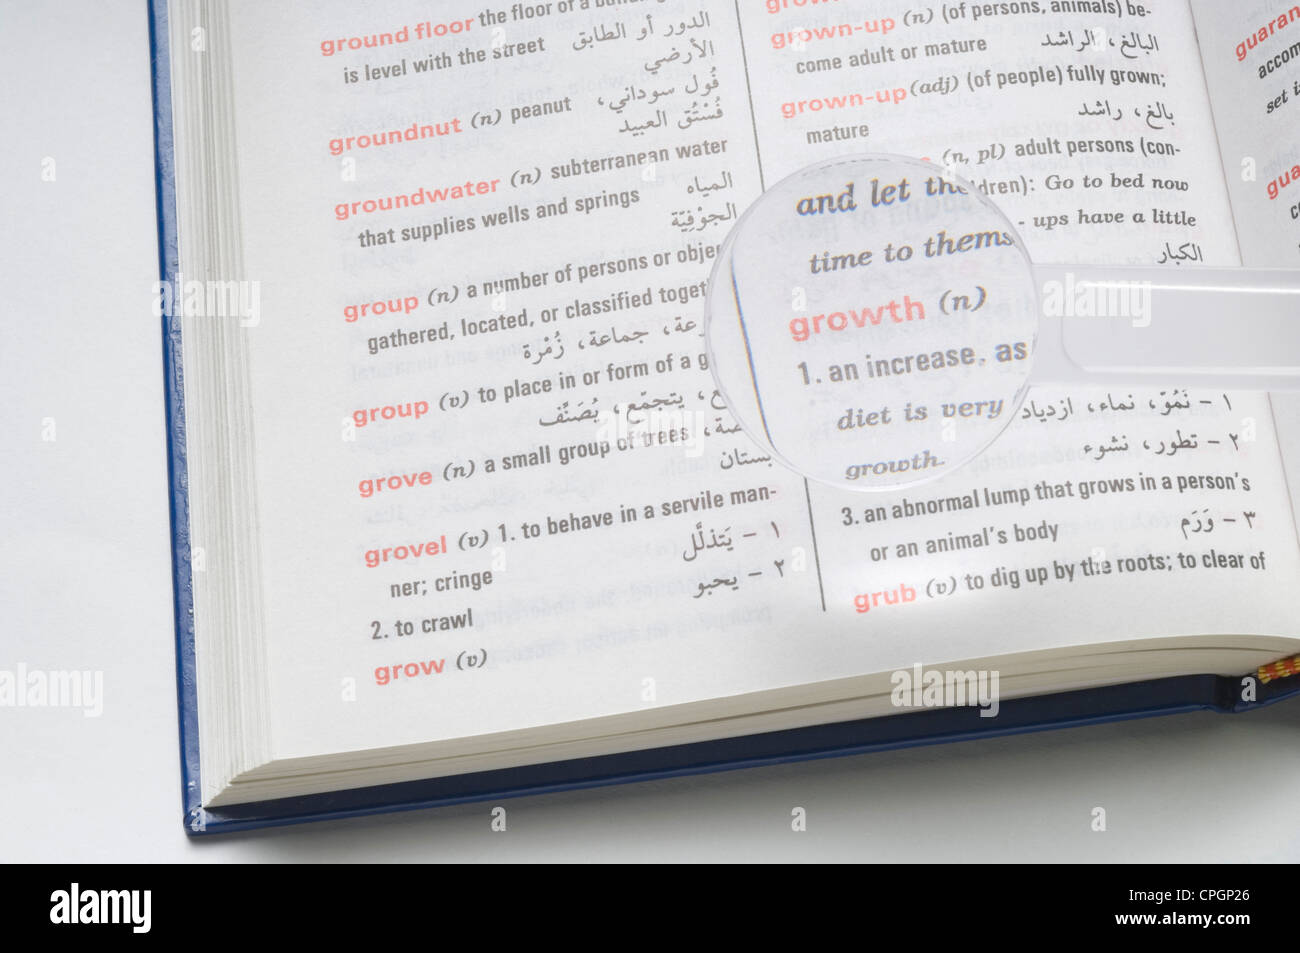 ground floor the floor of a
is level with the street الدور أو الطابق
الأرضي
groundnut (n) peanut فُول سوداني،
فُسْتُق العبيد
groundwater (n) subterranean water
that supplies wells and springs المياه
الجوْفِيّة
group (n) a number of persons or
gathered, located, or classified
جماعة، زُمْرة
group (v) to place in or form of a
يتجمّع، يُصَنَّف
grove (n) a small group of trees
بستان
grovel (v) 1. to behave in a servile man-
ner; cringe ١ – يَتذلَّل
2. to crawl ٢ – يحبو
grow (v)
grown-up (n) (of persons, animals) be-
come adult or mature البالغ، الراشد
grown-up (adj) (of people) fully grown;
mature بالغ، راشد
(n, pl) adult persons (con-
and let Go to bed now
- ups have a little
time to الكبار
growth (n)
1. an increase, as
١ – نَمُوّ، نماء، ازدياد
diet is very
٢ – تطور، نشوء
growth.
3. an abnormal lump that grows in a person's
or an animal's body ٣ – وَرَم
grub (v) to dig up by the roots; to clear of
set
alamy
alamy
alamy
alamy
Image ID: CPGP26
www.alamy.com